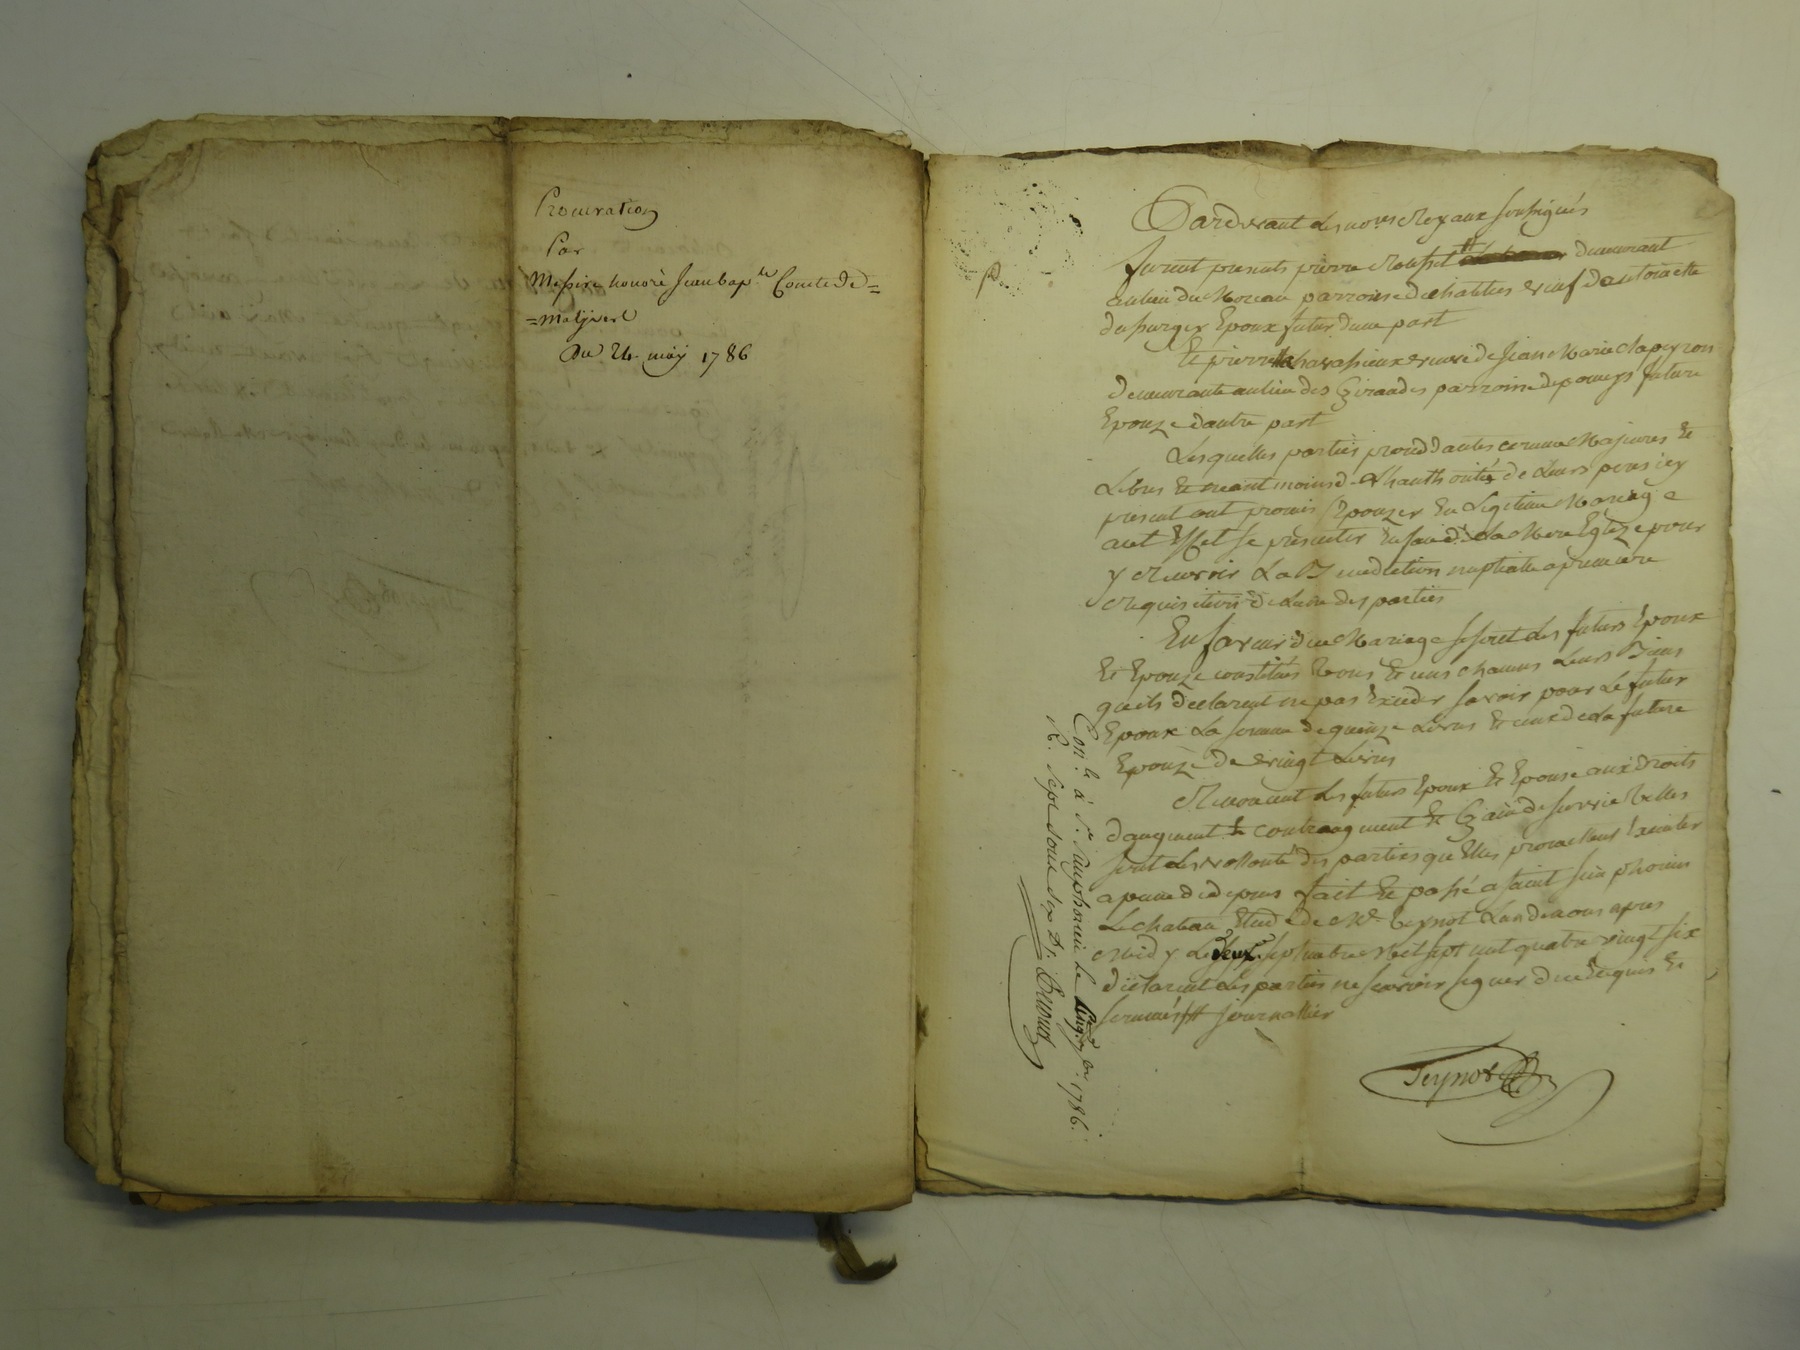 Procuration
Par
Messire honoré Jean bap.te Comte de=
=Malyvert
Du 24. may 1786
Pardevant les no.res Royaux soussignés
furent presents pierre Rousset # demeurant
au lieu du Moreau parroisse de chatelus veuf d'antoinette
du purger Epoux futur dune part
Et pierrette chavassieux veuve de Jean Marie clapeyron
demeurante au lieu des Giraudes parroisse de pomeys future
Epouze dautre part
Lesquelles parties procedd'antes comme Majeures Et
Libres Et neant moins d. L'hauthorité de Leurs peres icy
present ont promis s'Epouzer En Legitime Mariage
a cet Effet se presenter En face de La Mere Eglize pour
y Recevoir La Benediction nuptialle a premiere
Requisition de Lune des parties
En faveur du Mariage se sont les futurs Epoux
Et Epouze constitués tous Et uns chacuns Leurs Biens
quils declarent ne pas Exceder savoir pour Le futur
Epoux La somme de quinze Livres Et ceux de La future
Epouze de vingt Livres
Renoncent les futurs Epoux Et Epouse aux Droits
daugment Et contraugment Et Gain de survie telles
sont les vollonté des parties quelles promettent Executer
a peine de depens fait Et passé a saint simphorien
Le chateau Etude de M.e teynot Landenous apres
Midy Le deux septembre Mil sept cent quatre vingt six
declarent les parties ne savoir signer duee Requis Et
sommés # journallier
Teynot
Con.lé à S.t Simphorien le cinq 7bre 1786.
R. sept sous six D.rs Benoud